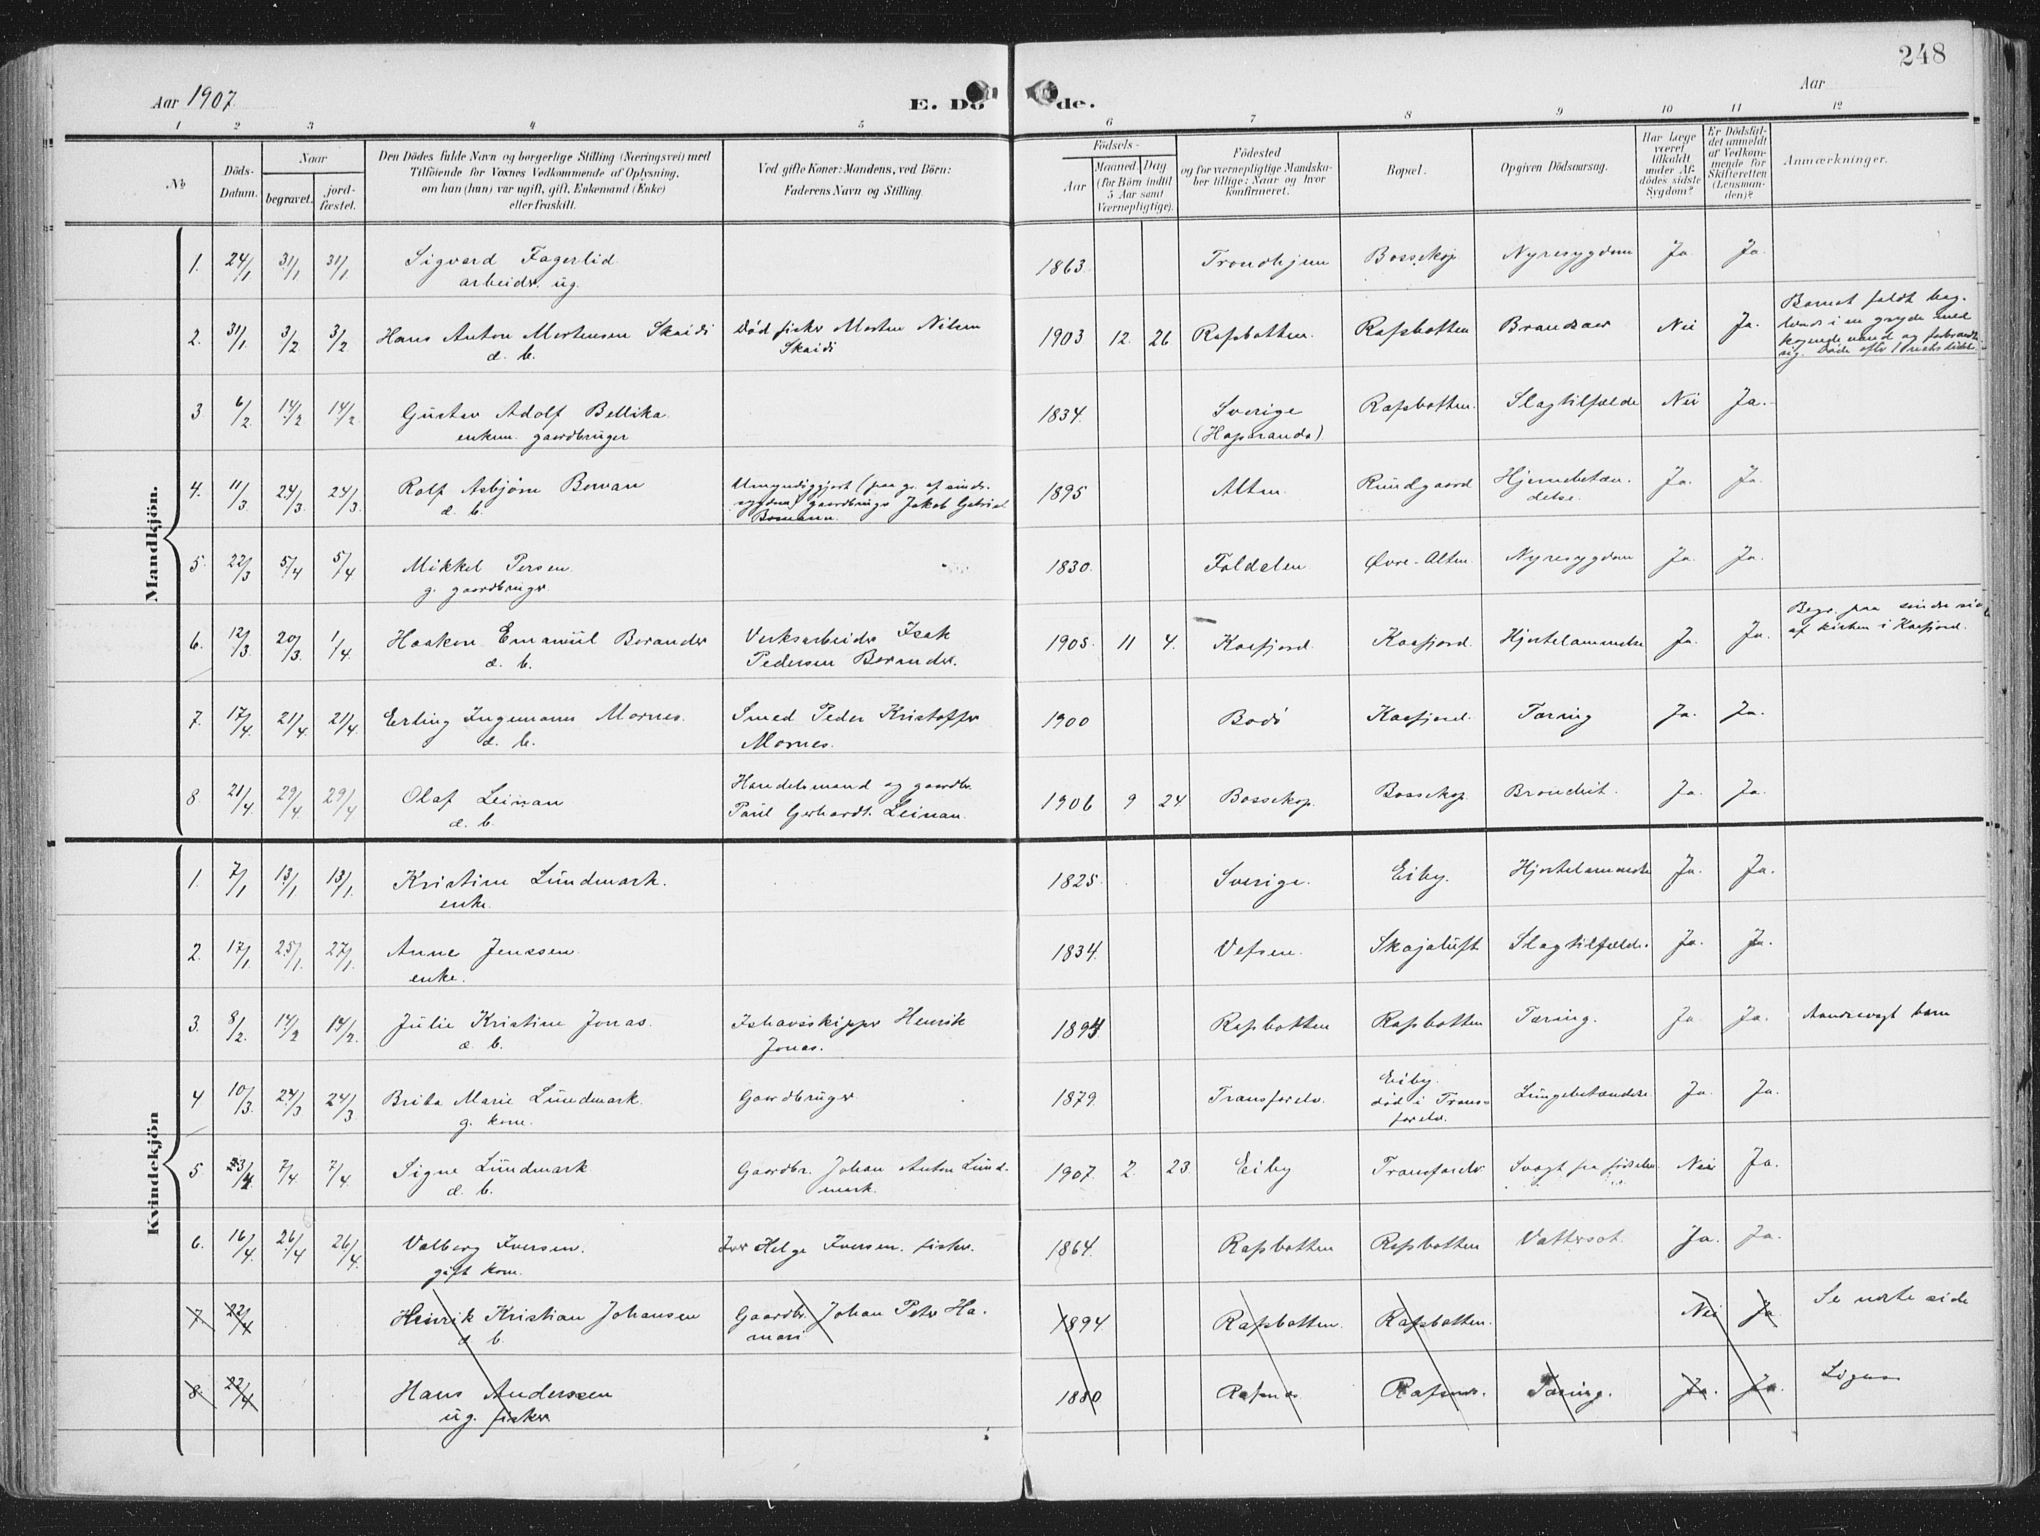 248
Aar 1907
E. Dö de.
Aar
1 2 3 4 5 6 7 8 9 10 11 12
No
Döds-Datum.
Naar
begravet.
jord-fæstet.
Den Dödes fulde Navn og borgerlige Stilling (Næringsvei) med
Tilföiende for Voxnes Vedkommende af Oplysning,
om han (hun) var ugift, gift, Enkemand (Enke)
eller fraskilt.
Ved gifte Koner: Mandens, ved Börn:
Faderens Navn og Stilling
Födsels-
Aar
Maaned
Dag
(for Börn indtil
5 Aar samt
Værnepligtige).
Födested
og for værnepligtige Mandska-
ber tillige: Naar og hvor
konfirmeret.
Bopæl.
Opgiven Dödsaarsag.
Har Læge
været
tilkaldt
under Af-
dödes sidste
Sygdom?
Er Dödsfal-
det anmeldt
af Vedkom-
mende for
Skifteretten
(Lensman-
den)?
Anmærkninger.
Mandkjön.
1. 24/1 31/1 31/1 Sigvard Fagerlid 1863. Trondhjem Bossekop Nyresygdom Ja. Ja.
arbeider. ug.
2. 31/1 3/2 3/2 Hans Anton Mortensen Skaidi Död fisker Morten Nilsen 1903 12. 26 Rafsbotten. Rafsbotten Brandsaar Nei Ja.
æ. b. Skaidi
Barnet faldt bag-
lends i en gryde med
kogende vand og forbrændte
sig. Döde efter
3 6/2 14/2 14/2. Gustav Adolf Bellika. 1834. Sverige Rafsbotten. Slagtilfælde Nei Ja.
enkem. gaardbruger (Haparanda)
4. 11/3 24/3. 24/3. Rolf Asbjörn Boman Umyndiggjort (paa gr. af sinds- 1895 Alten. Rundgaard Hjernebetæn- Ja. Ja.
æ. b. sygdom) gaardbruger Jakob Gabriel delse.
Bomann.
5. 22/3 5/4 5/4 Mikkel Persen 1830. Foldalen Øvre-Alten Nyresygdom Ja. Ja.
g. gaardbruger.
6. 12/3 20/3. 1/4. Haakon Emanuil Borander Verksarbeider Isak 1905. 11 4. Kaafjord. Kaafjord. Hjertelammelse Ja. Ja.
æ. b. Pedersen Borander.
Begr. paa söndre side
af kirken i Kaafjord.
7. 17/4. 21/4 21/4. Erling Ingemann Mornes. Smed Peder Kristoffer 1900 Bodö Kaafjord. Tæring Ja. Ja.
æ. b. Mornes.
8. 21/4. 29/4. 29/4 Olaf Leinan Handelsmand og gaardbr. 1906 9 24 Bossekop. Bossekop. Bronchit. Ja. Ja.
æ. b. Paul Gerhardt Leinan.
Kvindekjön
1. 7/1 13/1 13/1. Kristine Lundmark. 1825. Sverige. Eiby. Hjertelammelse Ja. Ja.
enke.
2. 17/1. 25/1. 27/1. Anne Jenssen 1834. Vefsen. Skajaluft Slagtilfælde. Ja. Ja.
enke.
3. 8/2. 14/2 14/2. Julie Kristine Jonas. Ishavsskipper Henrik 1894 Rafsbotten Rafsbotten Tæring. Ja. Ja. Aandsvagt barn
æ. b. Jonas.
4 10/3. 24/3 24/3 Brita Marie Lundmark. Gaardbruger 1879. Transfarelv. Eiby. Lungebetændelse Ja. Ja.
g. kone. död i Trans-
farelv.
5. 23/4 7/4. 7/4. Signe Lundmark Gaardbr. Johan Anton Lund- 1907. 2. 23 Eiby Transfarelv Svagt fra födselen Nei Ja.
æ. b. mark.
6. 16/4 26/4 26/4. Valborg Iversen. Helge Iversen. fisker. 1864. Rafsbotten Rafsbotten Vattersot. Ja. Ja.
gift kone.
7 22/4 Henrik Kristian Johansen Gaardbr. Johan Peter Ha- 1894 Rafsbotten. Rafsbotten. Nei Ja Se næste side
æ. b. man
8. 22/4 Hans Anderssen 1880 Rafsnes Rafsnes. Tæring. Ja. Ja.
ug. fisker